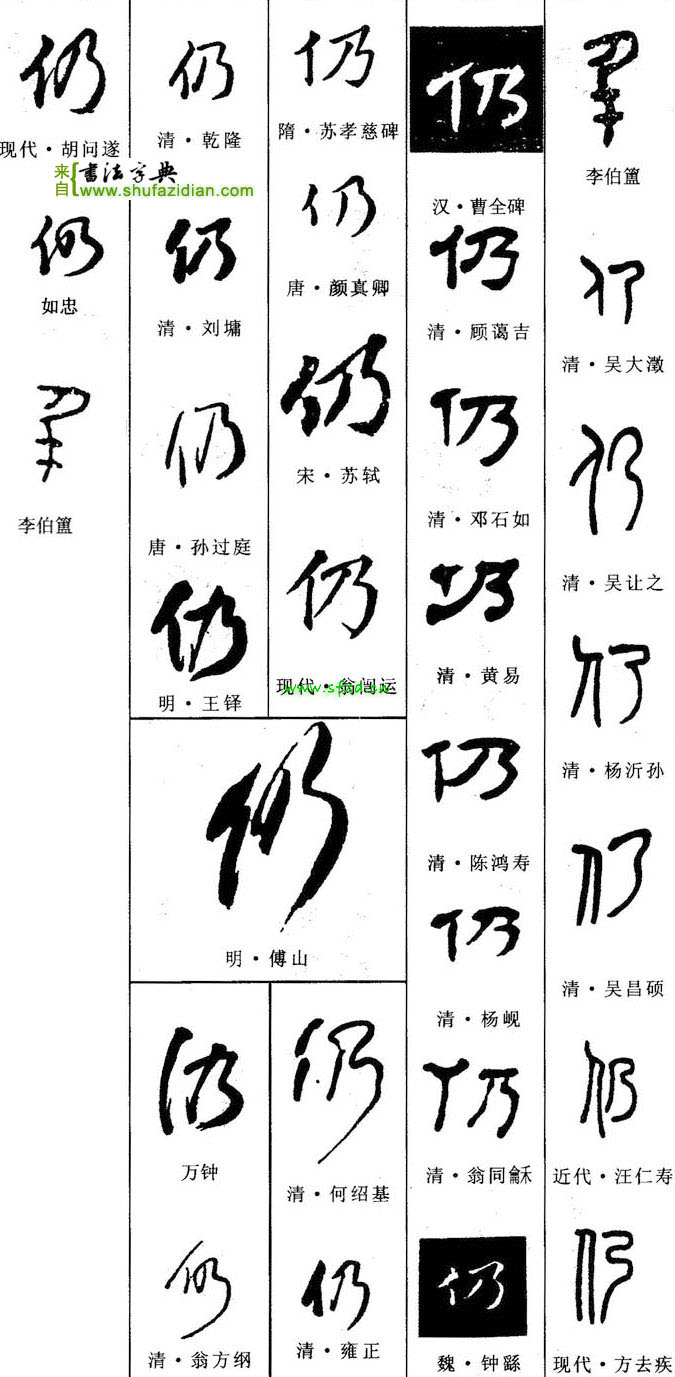 仍
现代·胡问遂
来自{书法字典
www.shufazidian.com
仍
如忠
仍
李伯簠
仍
清·乾隆
仍
清·刘墉
仍
唐·孙过庭
仍
明·王铎
仍
隋·苏孝慈碑
仍
唐·颜真卿
仍
宋·苏轼
仍
现代·翁闿运
www.sfzd.cn
仍
明·傅山
仍
万钟
仍
清·翁方纲
仍
清·何绍基
仍
清·雍正
仍
汉·曹全碑
仍
清·顾蔼吉
仍
清·邓石如
仍
清·黄易
仍
清·陈鸿寿
仍
清·杨岘
仍
清·翁同龢
仍
魏·钟繇
仍
李伯簠
仍
清·吴大澂
仍
清·吴让之
仍
清·杨沂孙
仍
清·吴昌硕
仍
近代·汪仁寿
仍
现代·方去疾